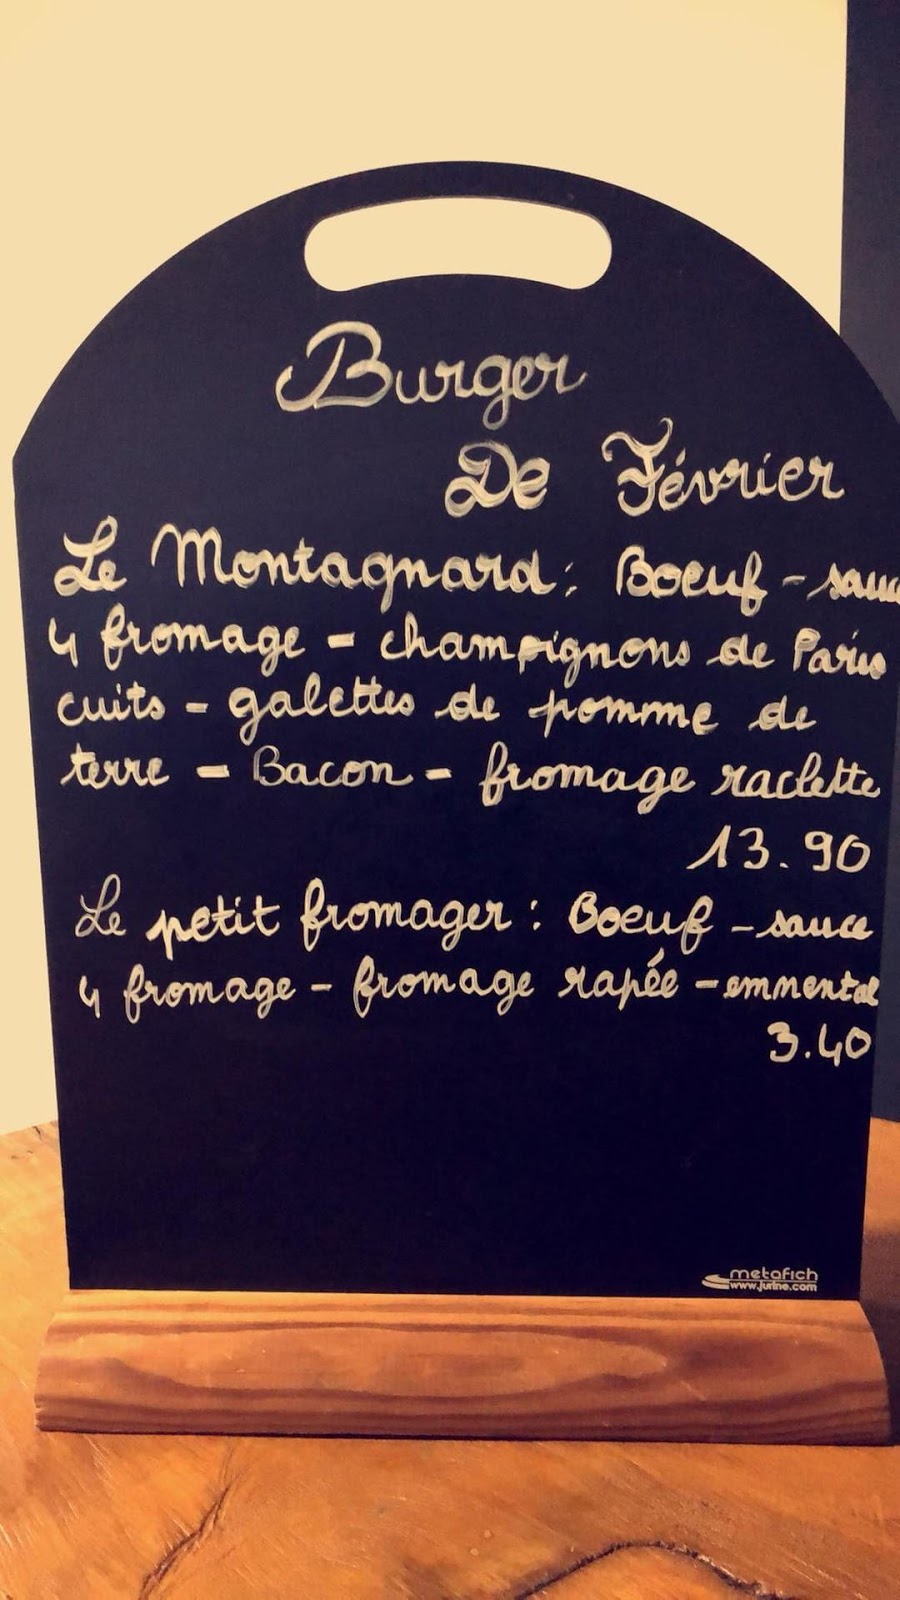 Burger
De Février
Le Montagnard: Boeuf - sauce
4 fromage - champignons de Paris
cuits - galettes de pomme de
terre - Bacon - fromage raclette
13.90
Le petit fromager: Boeuf - sauce
4 fromage - fromage rapée - emmental
3.40
metafich
www.jurine.com